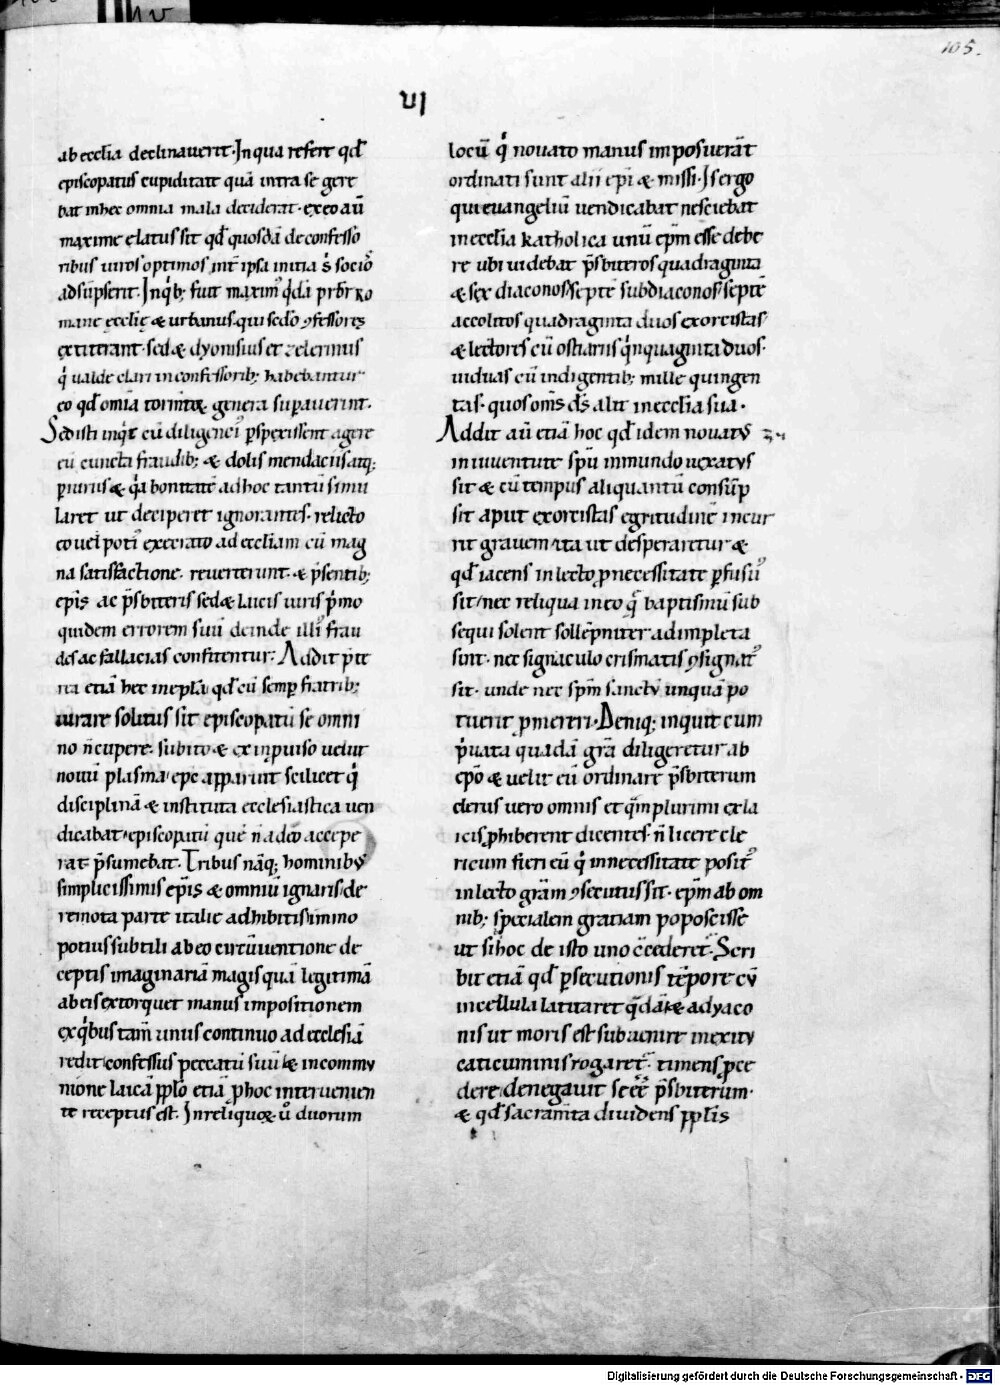 105.
VI
ab eccłia declinauerit· In qua refert qđ
episcopatus cupiditatē quā intra se gere
bat in hęc omnia mala deciderat· ex eo aū
maxime elatus sit qđ quosdā de confesso
ribus uiros optimos int̄ ipsa initia s̄ socio
adsūpserit· In qͥb; fuit maxim᾽ qͥdā prb̄r ro
mane ecclię & urbanus· qui sedo ꝯfessores
extiterant· sed & dyonisius et celerinus
qͥ ualde clari in confessorib; habebantur
eo qđ omīa tormtoꝝ genera supauerint·
Sed isti inqͥt cū diligenci᾽ pspexissent agere
eū cuncta fraudib; & dolis mendaciis atq;
piuriis & qͣ bonitatē ad hoc tantū simu
laret ut deciperet ignorantes· relicto
eo uel poti᾽ execrato ad eccłiam cū mag
na satisfactione· reuerterunt· & p̄sentib;
epīs ac p̄sbiteris sed & laicis uiris p̄mo
quidem errorem suū deinde illi᾽ frau
des ac fallacias confitentur· Addit p̄te
rea etiā hęc in epłā qđ cū semp fratrib;
iurare solitus sit episcopatū se omni
no n̄ cupere· subito & ex inpuiso uelut
nouū plasma epc̄ apparint scilicet qͥ
disciplinā & instituta ecclesiastica uen
dicabat· episcopatū quē n̄ a dō accepe
rat p̄sumebat· Tribus nāq; hominibus
simplicissimis epīs & omniū ignaris de
remota parte italie adhibitis immo
potius subtili ab eo circūuentione de
ceptis imaginariā magis quā legitimā
ab eis extorquet manus impositionem
ex qͥbus tam̄ unus continuo ad ecclesiā
redit confessus peccatū suū & in commu
nione laicā pp̄lo etiā p hoc interuenien
te receptus est· In reliquoꝝ u̓ duorum
locū qͥ nouato manus imposuerāt
ordinati sunt alii epī & missi· Is ergo
qui euangeliū uendicabat nesciebat
in eccłia katholica unū epm̄ esse debe
re ubi uidebat p̄sbiteros quadraginta
& sex diaconos septē subdiaconos septē
accolitos quadraginta duos exorcistas
& lectores cū ostiariis qͥnquaginta duos·
uiduas cū indigentib; mille quingen
tas· quos oms̄ ds̄ alit in eccłia sua·
Addit aū etiā hoc qđ idem nouatus
in iuuentute spū inmundo uexatus
sit & cū tempus aliquantū consūp
sit aput exorcistas egritudinē incur
rit grauem ita ut desperaretur &
qđ iacens in lecto p necessitate pfusū᾽
sit/ nec reliqua in eo q̄ baptismū sub
sequi solent sollēpniter adimpleta
sunt· nec signaculo crismatis ꝯsignat᾽
sit· unde nec spm̄ sanctū unquā po
tuerit pmereri· Deniq; inquit cum
p̄uata quadā gr̄a diligeretur ab
epō & uelit eū ordinare p̄sbiterum
clerus uero omnis et qͣmplurimi ex la
icis phiberent dicentes· n̄ licere cle
ricum fieri eū qͥ in necessitate posit᾽
in lecto gr̄am ꝯsecutus sit· epm̄ ab om
nib; specialem gratiam poposcisse
ut si hoc de isto uno ꝯcederet· Scri
bit etiā qđ psecutionis tēpore cū
in cellula latitaret qͣdā & a dyaco
nis ut moris est subuenire in exitu
caticuminis rogaret· timens pce
dere denegauit se eē p̄sbiterum·
& qđ sacram̄ta diuidens pplīs
Digitalisierung gefördert durch die Deutsche Forschungsgemeinschaft - DFG